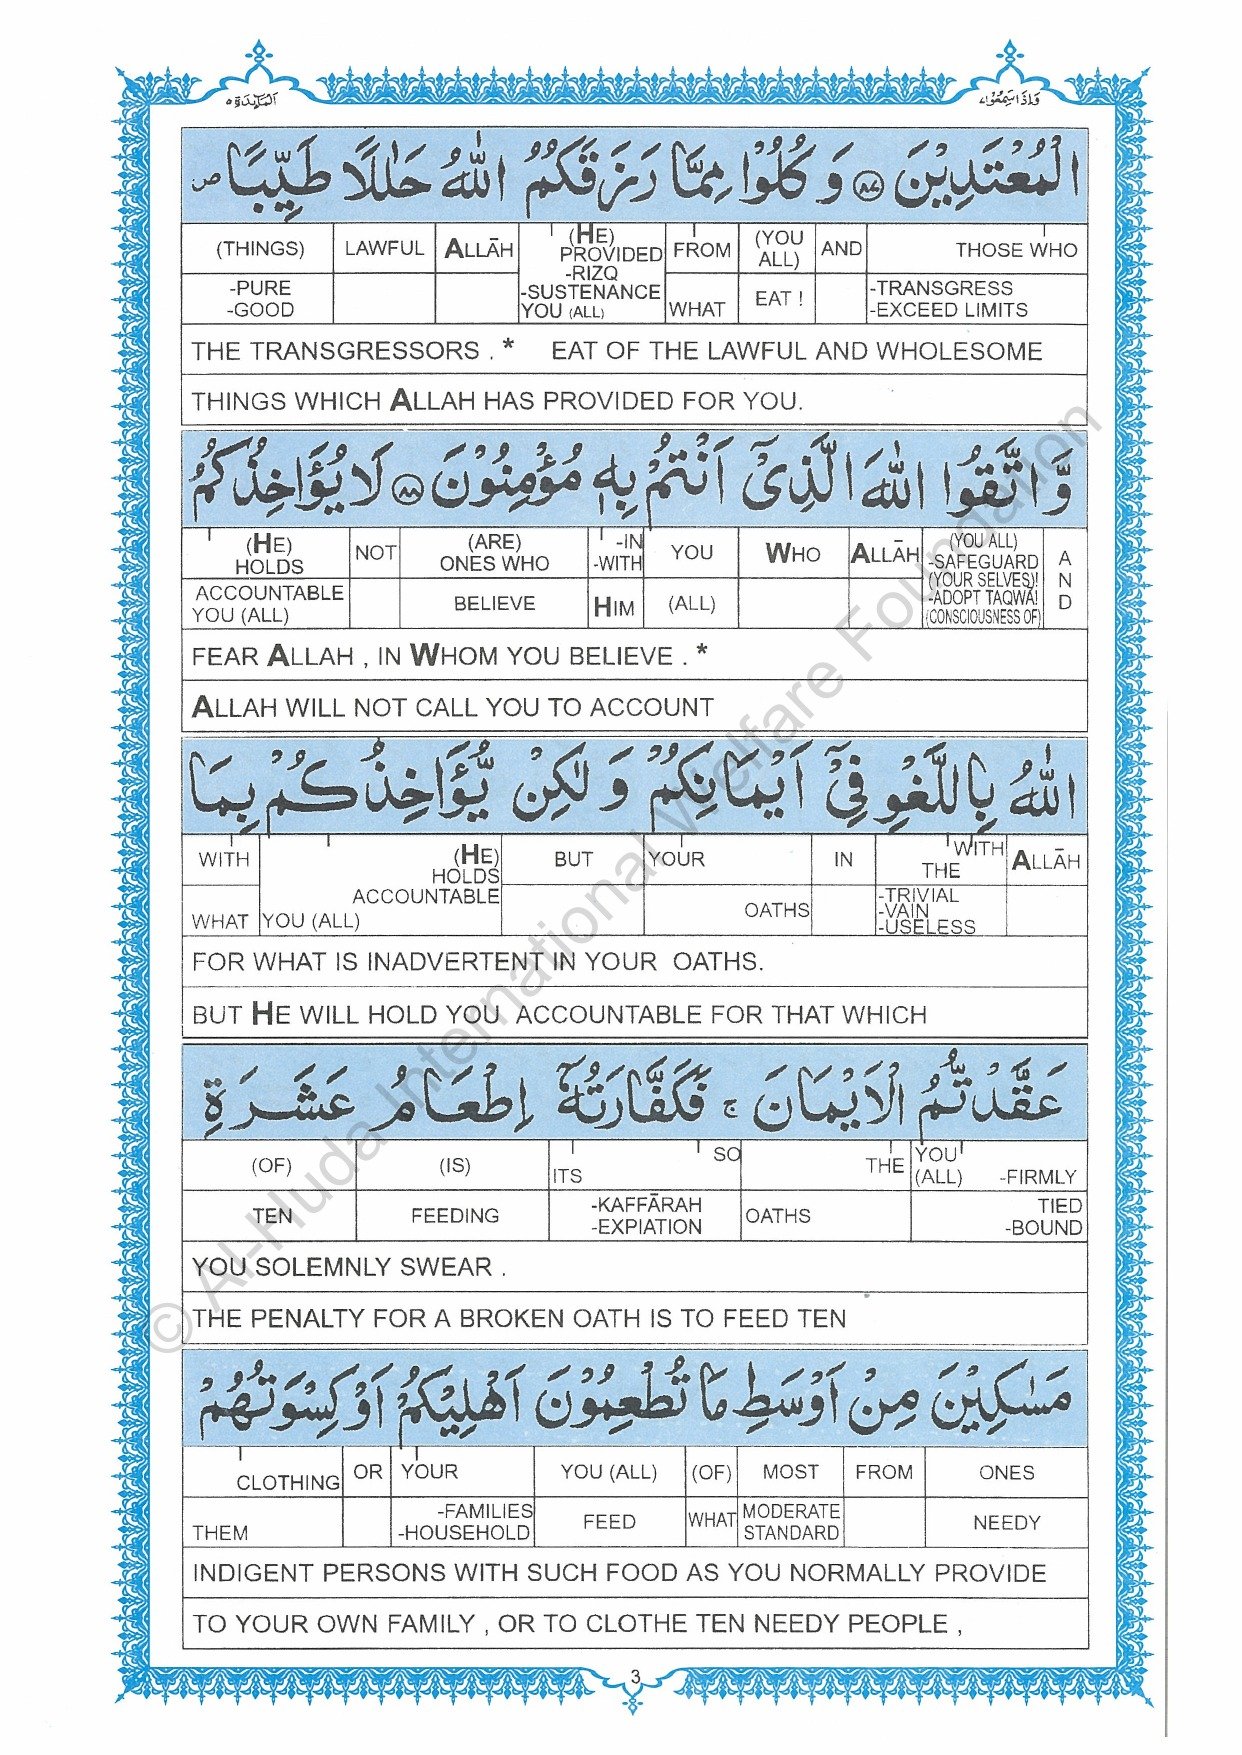 المائدة ٥
واذا سمعوا ٧
الْمُعْتَدِيْنَ ﴿٨٧﴾ وَكُلُوْا مِمَّا رَزَقَكُمُ اللّٰهُ حَلٰلًا طَيِّبًا ص
(THINGS) LAWFUL ALLĀH (HE) PROVIDED -RIZQ -SUSTENANCE YOU (ALL) FROM (YOU ALL) AND THOSE WHO
-PURE -GOOD WHAT EAT ! -TRANSGRESS -EXCEED LIMITS
THE TRANSGRESSORS . * EAT OF THE LAWFUL AND WHOLESOME
THINGS WHICH ALLAH HAS PROVIDED FOR YOU.
وَّاتَّقُوا اللّٰهَ الَّذِيْٓ اَنْتُمْ بِهٖ مُؤْمِنُوْنَ ﴿٨٨﴾ لَا يُؤَاخِذُكُمُ
(HE) HOLDS NOT (ARE) ONES WHO -IN -WITH YOU WHO ALLĀH (YOU ALL) -SAFEGUARD (YOUR SELVES)! -ADOPT TAQWA! (CONSCIOUSNESS OF) AND
ACCOUNTABLE YOU (ALL) BELIEVE HIM (ALL)
FEAR ALLAH , IN WHOM YOU BELIEVE . *
ALLAH WILL NOT CALL YOU TO ACCOUNT
اللّٰهُ بِاللَّغْوِ فِيْٓ اَيْمَانِكُمْ وَلٰكِنْ يُّؤَاخِذُكُمْ بِمَا
WITH (HE) HOLDS ACCOUNTABLE BUT YOUR IN WITH THE ALLĀH
WHAT YOU (ALL) OATHS -TRIVIAL -VAIN -USELESS
FOR WHAT IS INADVERTENT IN YOUR OATHS.
BUT HE WILL HOLD YOU ACCOUNTABLE FOR THAT WHICH
عَقَّدْتُّمُ الْاَيْمَانَ ج فَكَفَّارَتُهٗٓ اِطْعَامُ عَشَرَةِ
(OF) (IS) ITS SO THE YOU (ALL) -FIRMLY
TEN FEEDING -KAFFĀRAH -EXPIATION OATHS TIED -BOUND
YOU SOLEMNLY SWEAR .
THE PENALTY FOR A BROKEN OATH IS TO FEED TEN
مَسٰكِيْنَ مِنْ اَوْسَطِ مَا تُطْعِمُوْنَ اَهْلِيْكُمْ اَوْ كِسْوَتُهُمْ
CLOTHING OR YOUR YOU (ALL) (OF) MOST FROM ONES
THEM -FAMILIES -HOUSEHOLD FEED WHAT MODERATE STANDARD NEEDY
INDIGENT PERSONS WITH SUCH FOOD AS YOU NORMALLY PROVIDE
TO YOUR OWN FAMILY , OR TO CLOTHE TEN NEEDY PEOPLE ,
3
© Al-Huda International Welfare Foundation